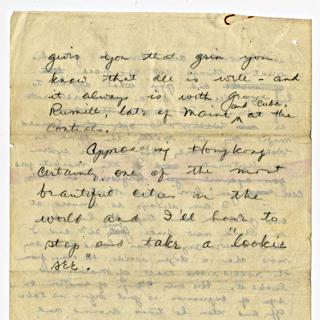 gives you that grin you
know that all is well - and
it always is with George
Rummill, late of Maine and Cuba, at the
controls.
Approaching Hongkong
Certainly one of the most
beautiful cities in the
world and I'll have to
stop and take a "lookie
see".